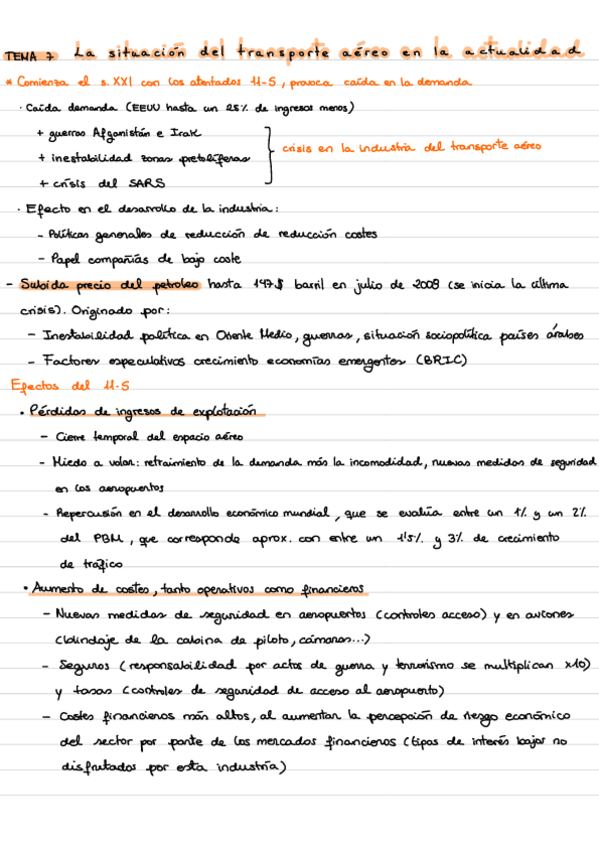 TEMA 7 La situación del transporte aéreo en la actualidad
* Comienza el s. XXI con los atentados 11-S, provoca caída en la demanda
· Caída demanda (EEUU hasta un 25% de ingresos menos)
+ guerras Afganistán e Irak
+ inestabilidad zonas petolíferas
crisis en la industria del transporte aéreo
+ crisis del SARS
· Efecto en el desarrollo de la industria:
- Políticas generales de reducción de reducción costes
- Papel compañías de bajo coste
- Subida precio del petroleo hasta 147$ barril en julio de 2008 (se inicia la última
crisis). Originado por:
- Inestabilidad política en Oriente Medio, guerras, situación sociopolítica países árabes
- Factores especulativos crecimiento economías emergentes (BRIC)
Efectos del 11-S
· Pérdidas de ingresos de explotación
- Cierre temporal del espacio aéreo
- Miedo a volar: retraimiento de la demanda más la incomodidad, nuevas medidas de seguridad
en los aeropuertos
- Repercusión en el desarrollo económico mundial, que se evalúa entre un 1% y un 2%
del PBM, que corresponde aprox. con entre un 1'5% y 3% de crecimiento
de tráfico
· Aumento de costes, tanto operativos como financieros
- Nuevas medidas de seguridad en aeropuertos (controles acceso) y en aviones
(blindaje de la cabina de piloto, cámaras...)
- Seguros (responsabilidad por actos de guerra y terrorismo se multiplican x10)
y tasas (controles de seguridad de acceso al aeropuerto)
- Costes financieros más altos, al aumentar la percepción de riesgo económico
del sector por parte de los mercados financieros (tipos de interés bajos no
disfrutados por esta industria)